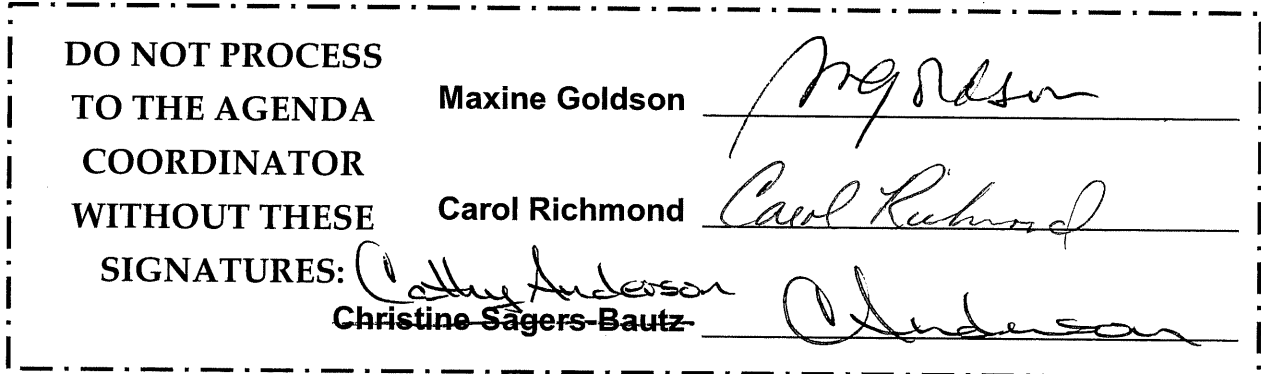 DO NOT PROCESS
TO THE AGENDA
COORDINATOR
WITHOUT THESE
SIGNATURES:
Maxine Goldson MGoldson
Carol Richmond Carol Richmond
Cathy Anderson
Christine Sagers-Bautz CAnderson